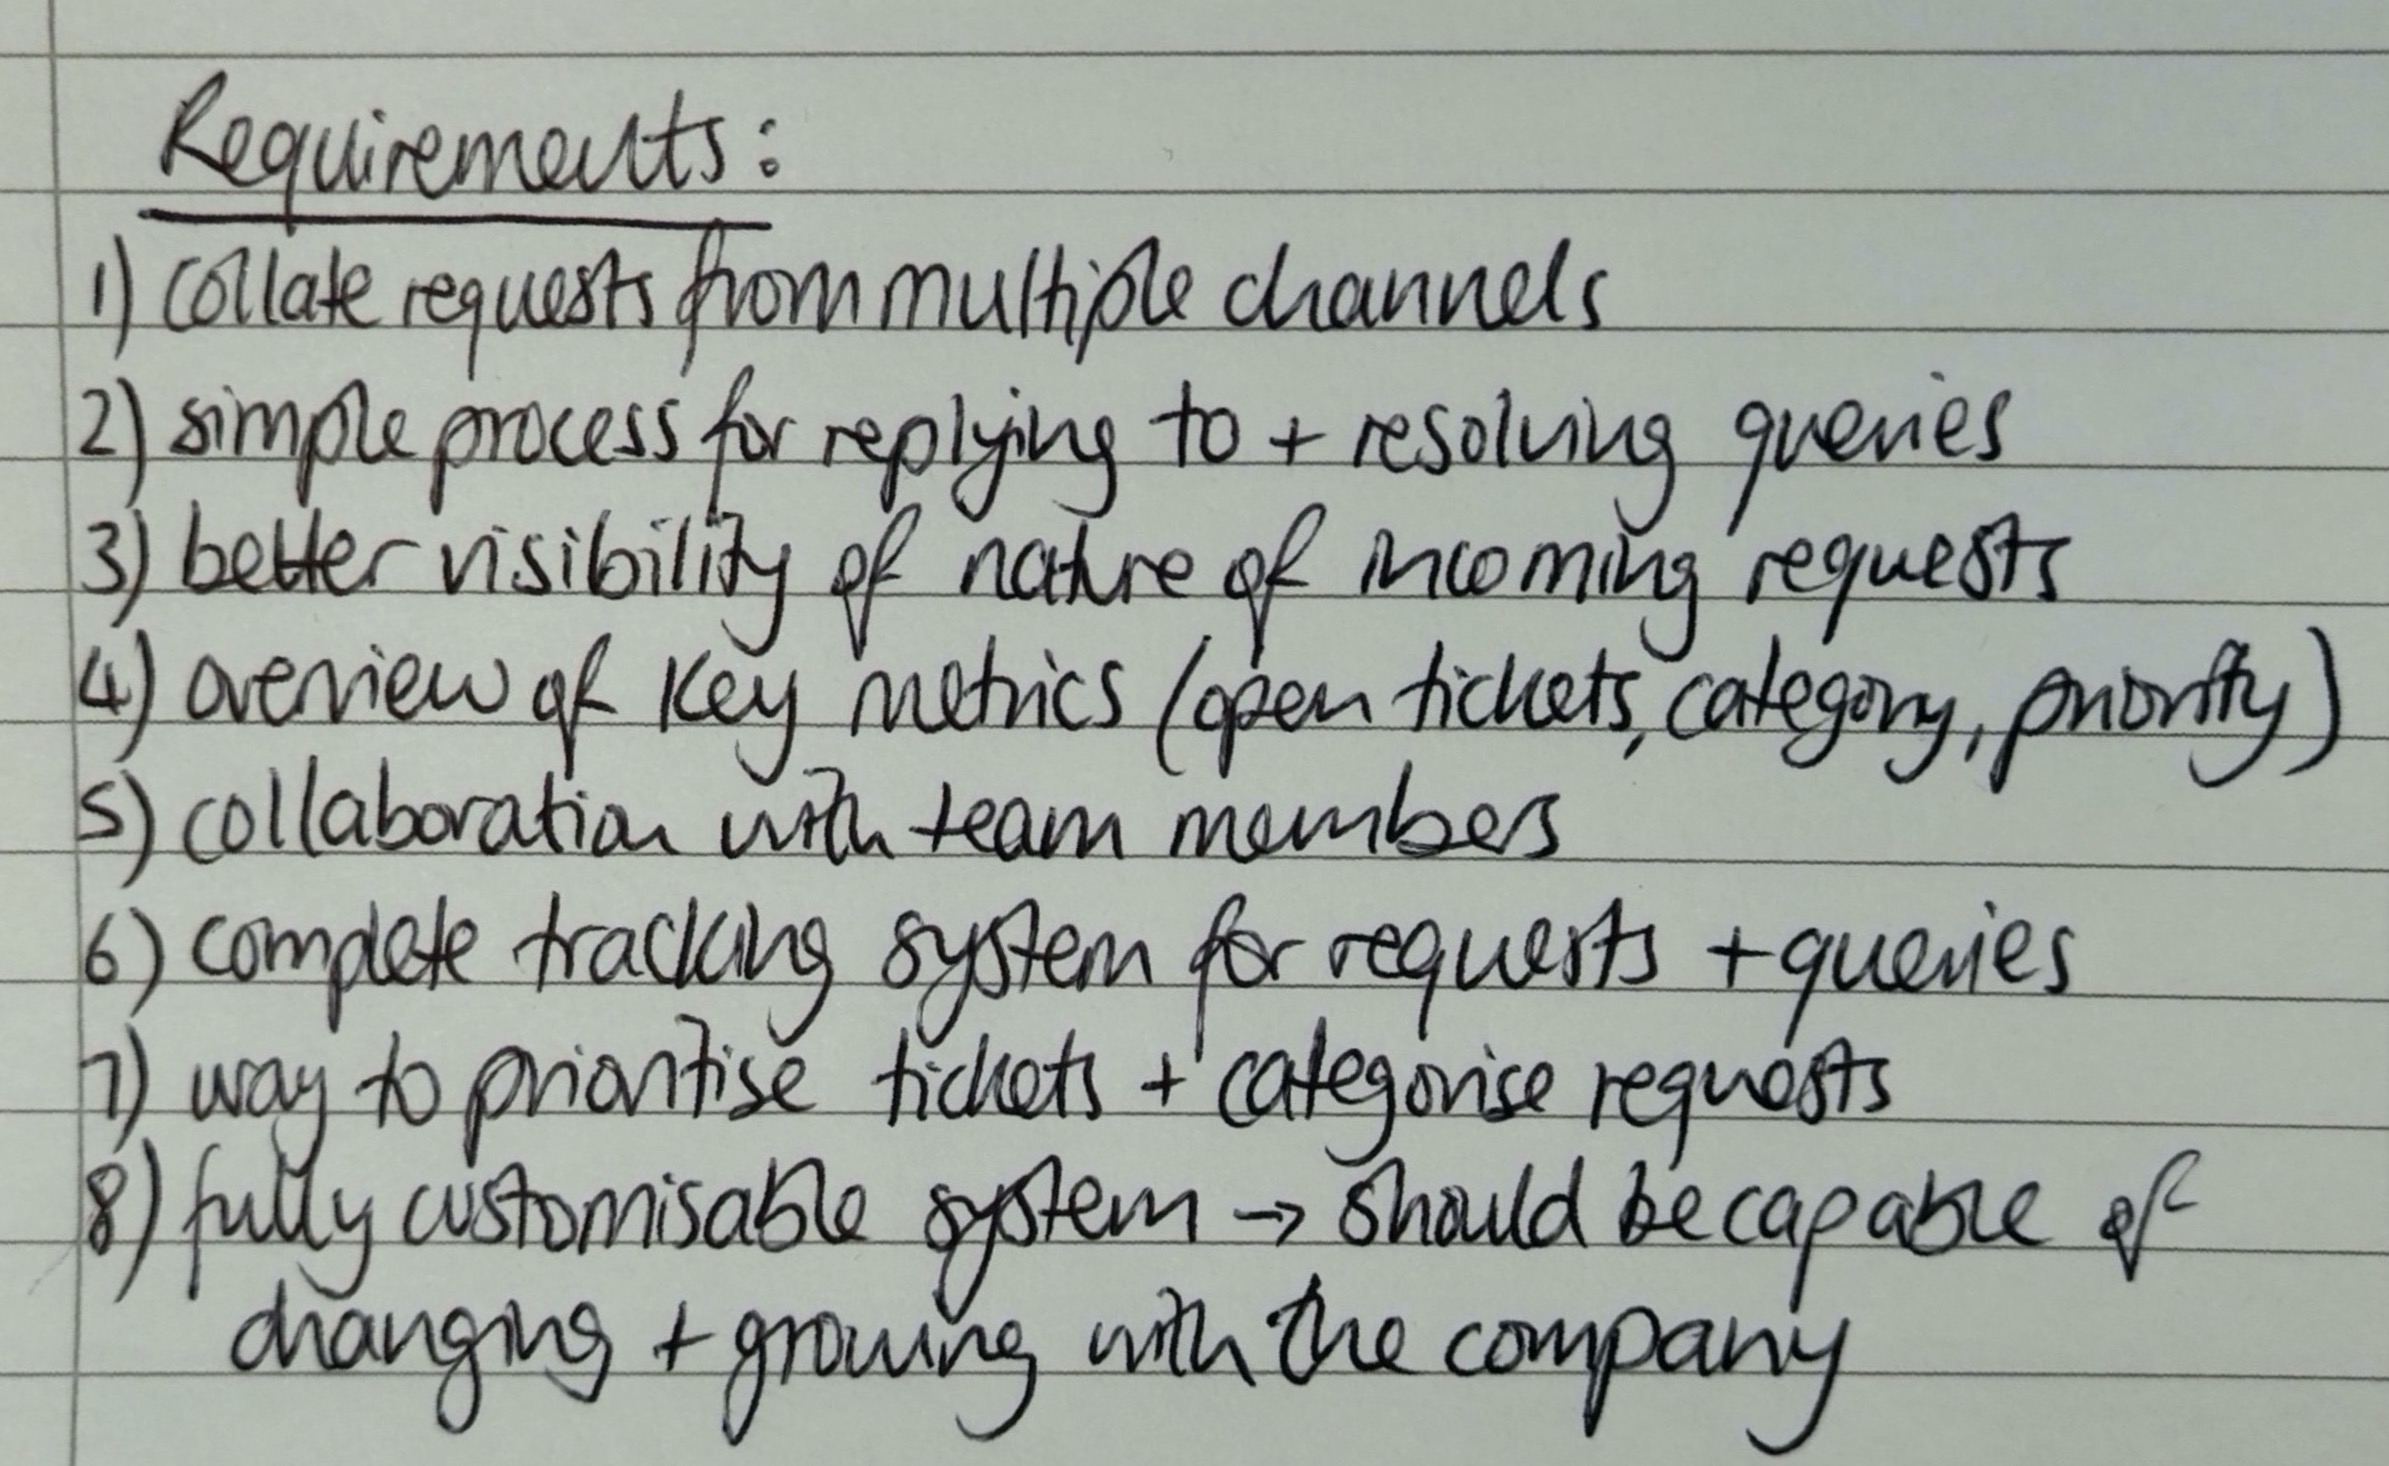 Requirements:
1) collate requests from multiple channels
2) simple process for replying to + resolving queries
3) better visibility of nature of incoming requests
4) overview of key metrics (open tickets, category, priority)
5) collaboration with team members
6) complete tracking system for requests + queries
7) way to prioritise tickets + categorise requests
8) fully customisable system → should be capable of
changing + growing with the company